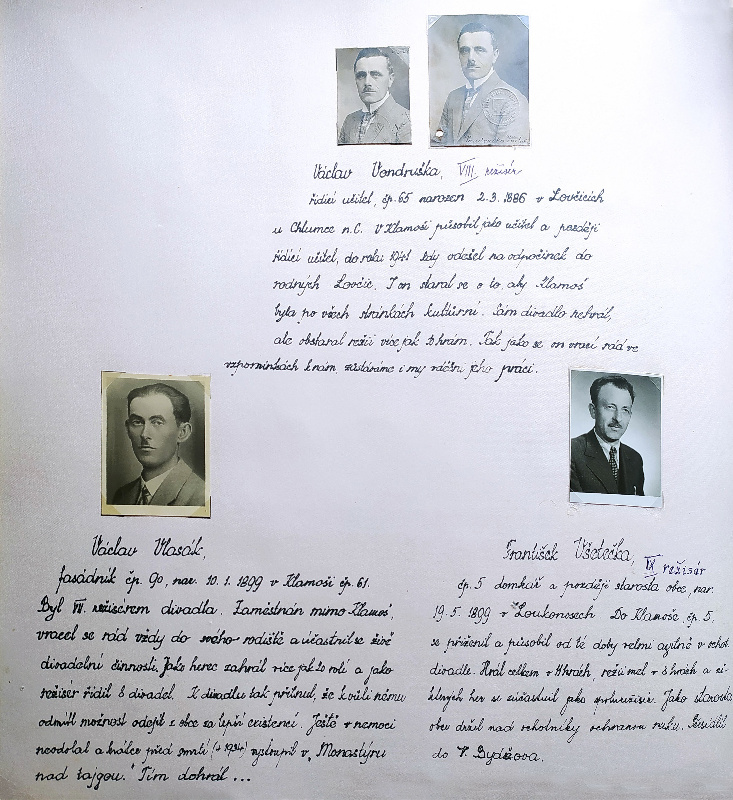 Václav Vondruška, VIII. režisér
řídící učitel, čp. 65 narozen 2.3.1886 v Lovčicích
u Chlumce n.C. V Klamoši působil jako učitel a později
řídící učitel, do roku 1941 kdy odešel na odpočinek do
rodných Lovčic. I on staral se o to, aby Klamoš
byla po všech stránkách kulturní. Sám divadlo nehrál,
ale obstaral režii více jak hrám. Tak jako se on vrací rád ve
vzpomínkách k nám zůstáváme i my vděčni jeho práci.
Václav Vlasák,
fasádník čp. 90, nar. 10.1.1899 v Klamoši čp. 61.
Byl VII. režisérem divadla. Zaměstnán mimo Klamoš,
vracel se rád vždy do svého rodiště a účastnil se živě
divadelní činnosti. Jako herec zahrál více jak rolí a jako
režisér řídil 8 divadel. K divadlu tak přilnul, že kvůli němu
odmítl možnost odejít z obce za lepší existencí. Ještě v nemoci
neodolal a krátce před smrtí (+ 1934) vystoupil v „Monastýru
nad tajgou." Tím dohrál ...
František Všetečka, IX režisér
čp. 5 domkář a později starosta obce, nar.
19.5.1899 v Loukonosech Do Klamoše, čp. 5.
se přiženil a působil od té doby velmi agilně v ochot.
divadle. Hrál celkem v hrách, režii měl v 8 hrách a
jako Jako starosta
obce držel nad ochotníky ochrannou ruku.
do N. Bydžova.